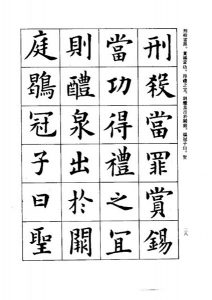 刑殺當罪，賞錫當功，得禮之宜，則醴泉出於闕庭。鶡冠子曰：聖
二八
刑殺當罪賞錫
當功得禮之宜
則醴泉出於闕
庭鶡冠子曰聖